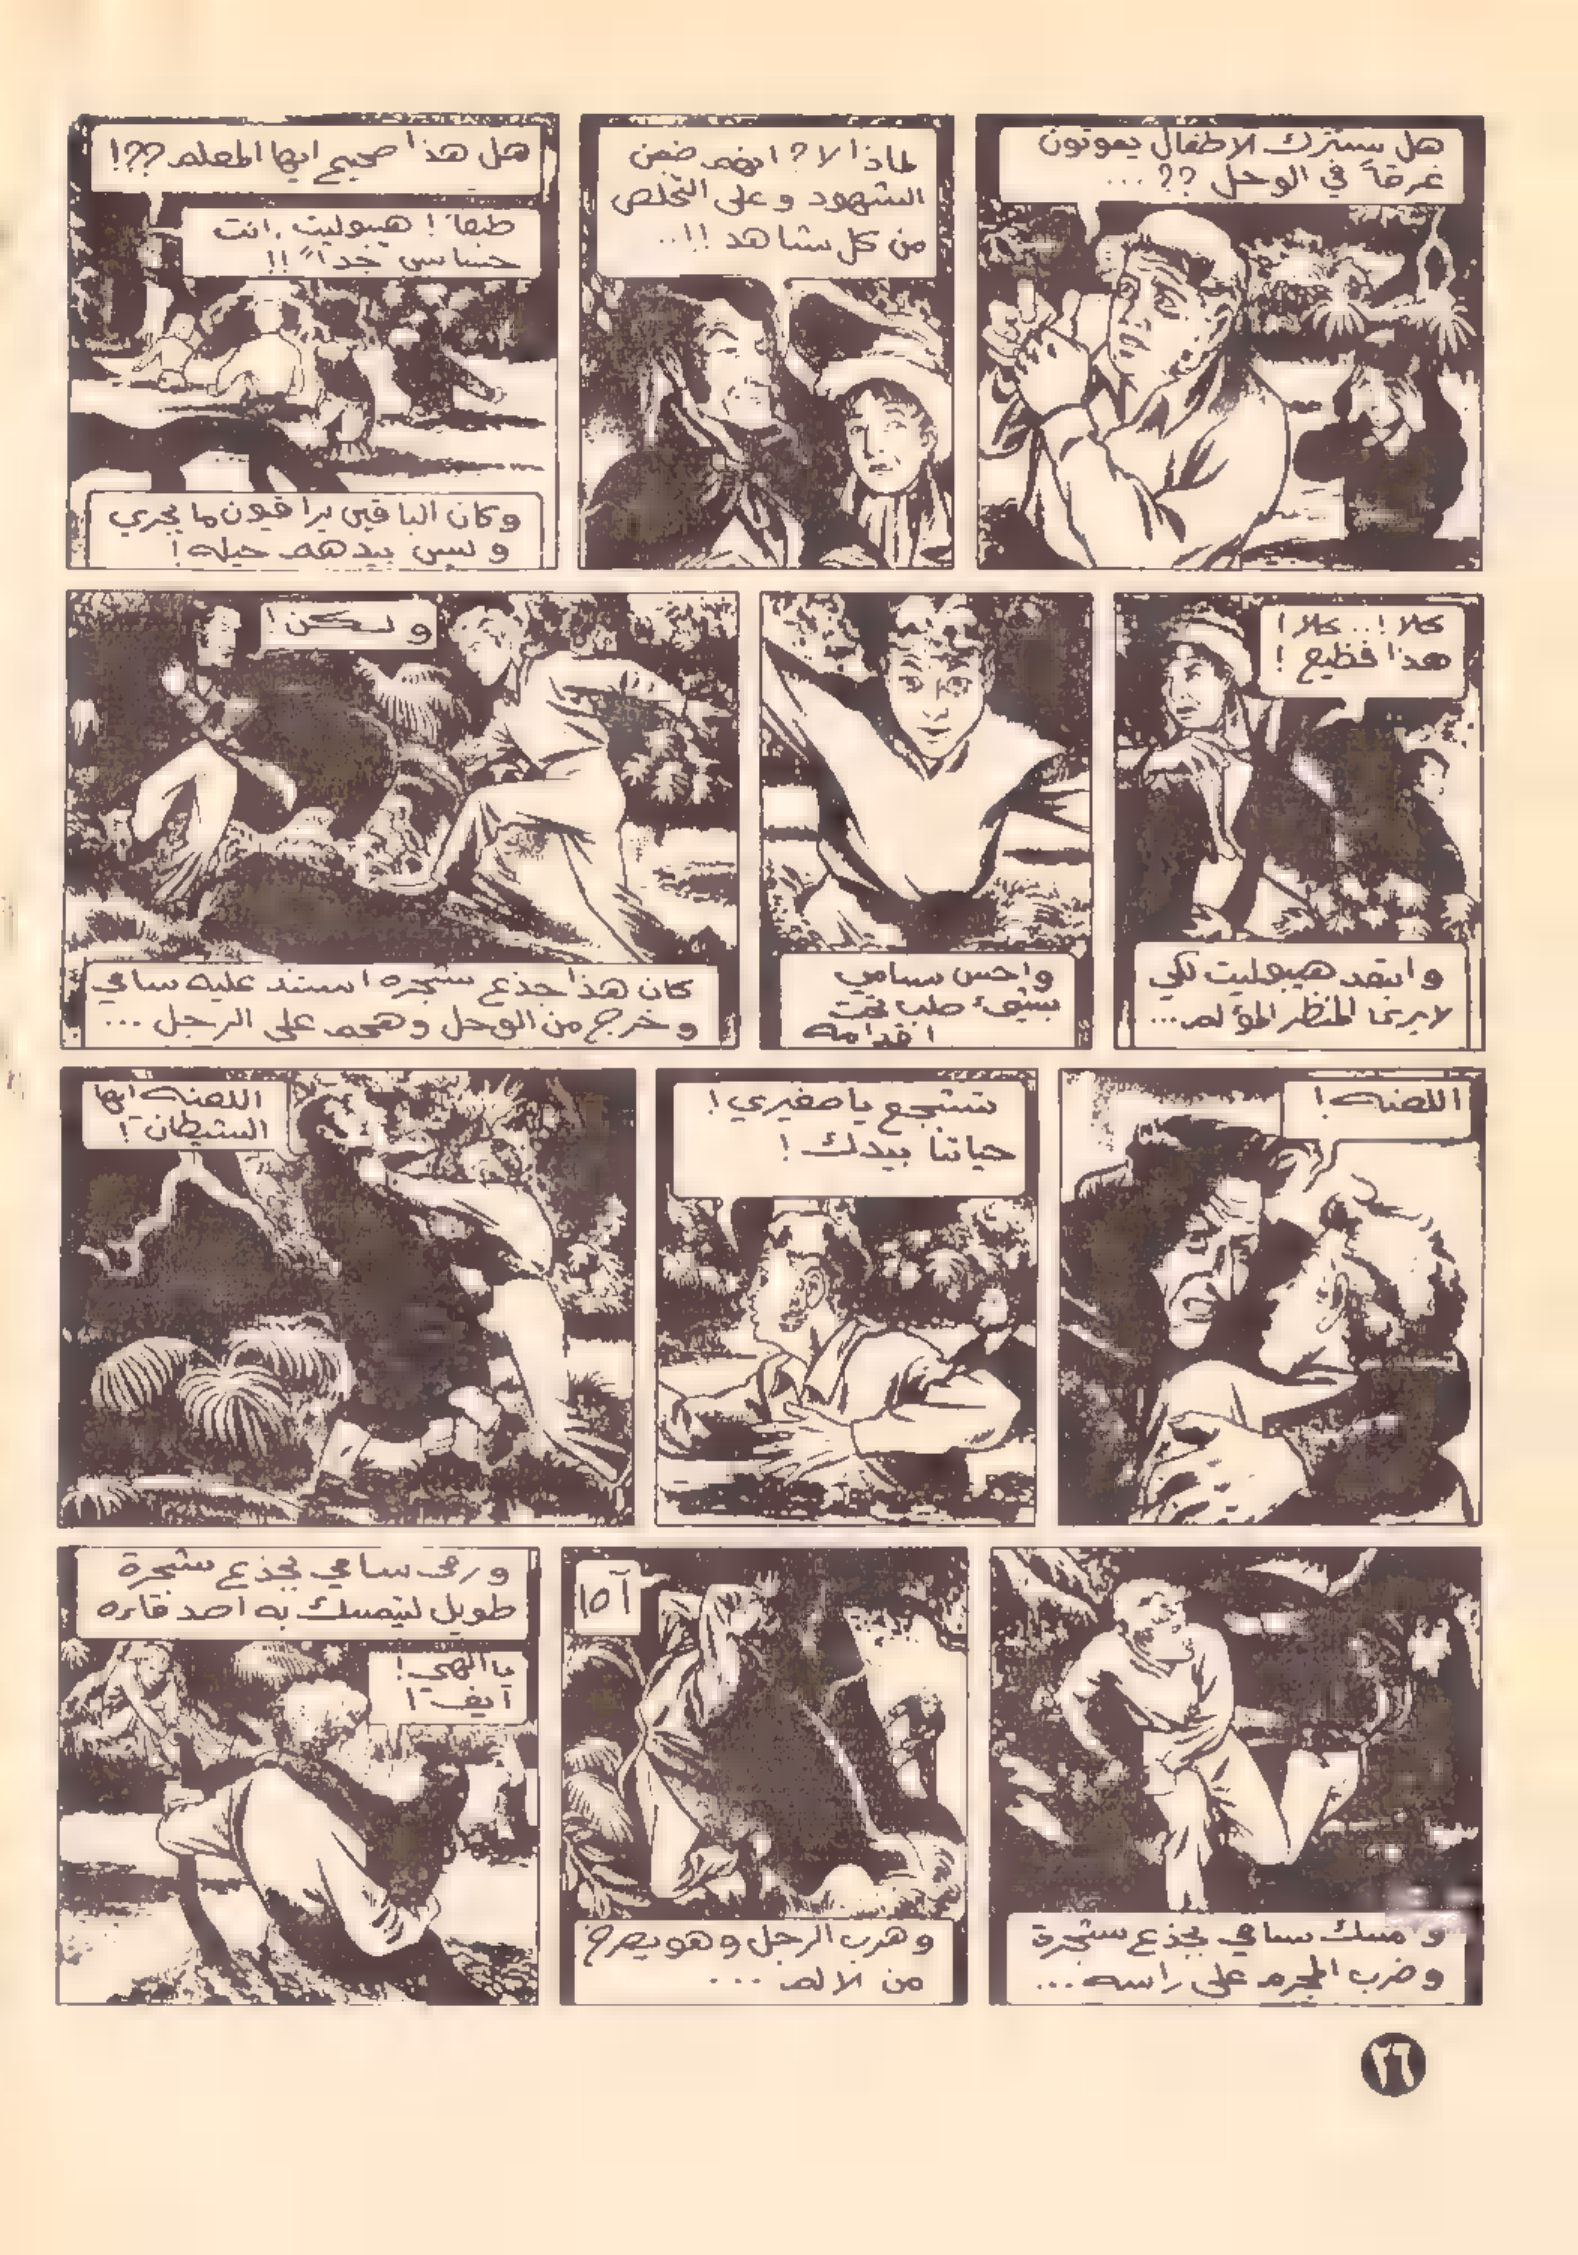 هل ستترك الاطفال يموتون
غرقاً في الوحل ؟؟ ...
لماذا لا ؟ انهم ضمن
الشهود و على التخلص
من كل شاهد !! ..
هل هذا صحيح ايها المعلم ؟؟!
طبعاً ! هيبوليت . انت
حساس جداً !!
وكان الباقين يراقبون ما يجري
و ليس بيدهم حيله !
كلا ! .. كلا !
هذا فظيع !
و ابتعد هيبوليت لكي
لا يرى المنظر المؤلم ...
واحس سامي
بشيء صلب تحت
اقدامه
و لكن !
كان هذا جذع شجره استند عليه سامي
و خرج من الوحل و هجم على الرجل ...
اللعنه !
تشجع يا صغيري !
حياتنا بيدك !
اللعنه ايها
الشيطان !
و مسك سامي بجذع شجرة
و ضرب المجرم على راسه ...
آه !
و هرب الرجل و هو يصرخ
من الالم ...
و رمى سامي بجذع شجرة
طويل ليتمسك به اصدقاءه
يا الهي !
٢٦